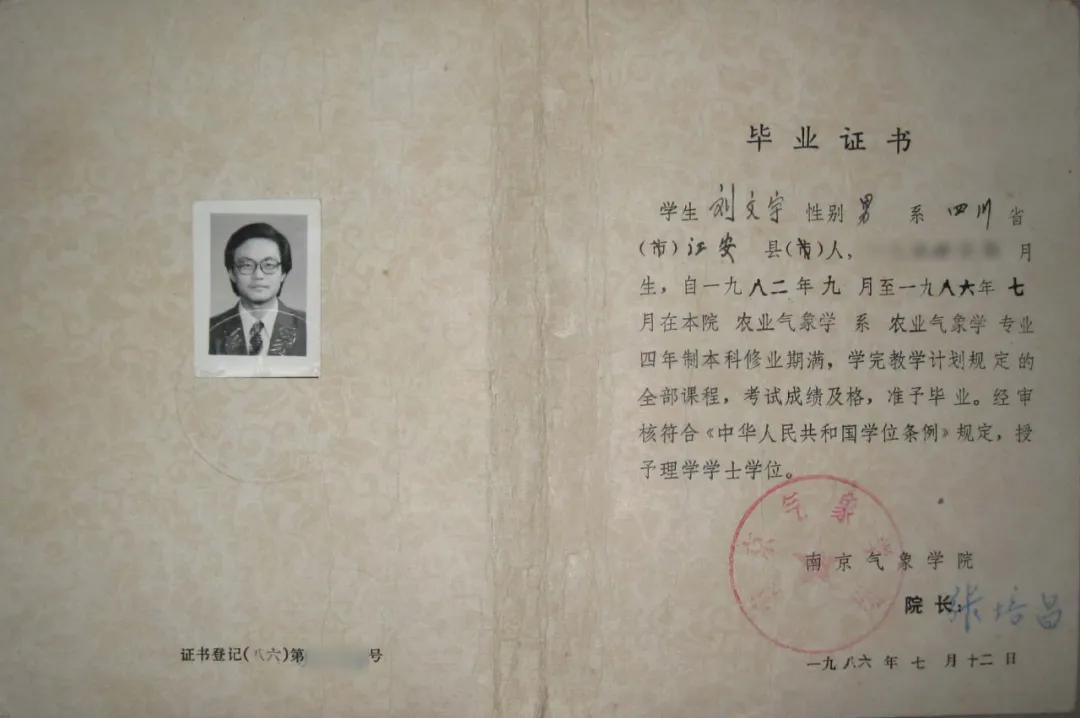 证书登记(八六)第 号
毕业证书
学生 刘文宇 性别 男 系 四川 省
(市)江安 县(市)人, 月
生，自一九八二年九 月至一九八六年 七
月在本院 农业气象学 系 农业气象学 专业
四年制本科修业期满，学完教学计划规定的
全部课程，考试成绩及格，准予毕业。经审
核符合《中华人民共和国学位条例》规定，授
予理学学士学位。
南京气象学院
南京气象学院
院长：张培昌
一九八六年七月十二日